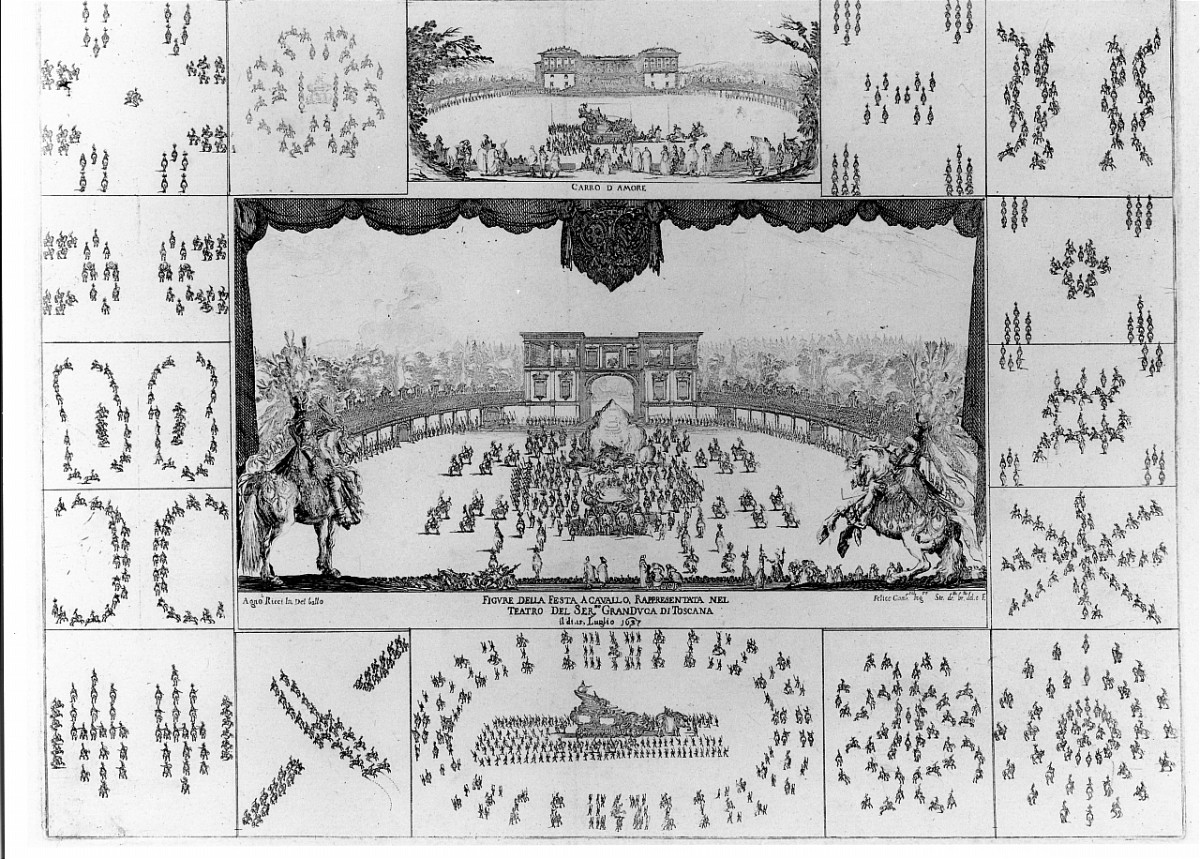 CARRO D AMORE
Agnoˡᵒ Ricci In. Del ballo
FIGVRE DELLA FESTA A CAVALLO, RAPPRESENTATA NEL
TEATRO DEL SER.ᵐᵒ GRANDVCA DI TOSCANA
il dì 15. Luglio 1637
Felice